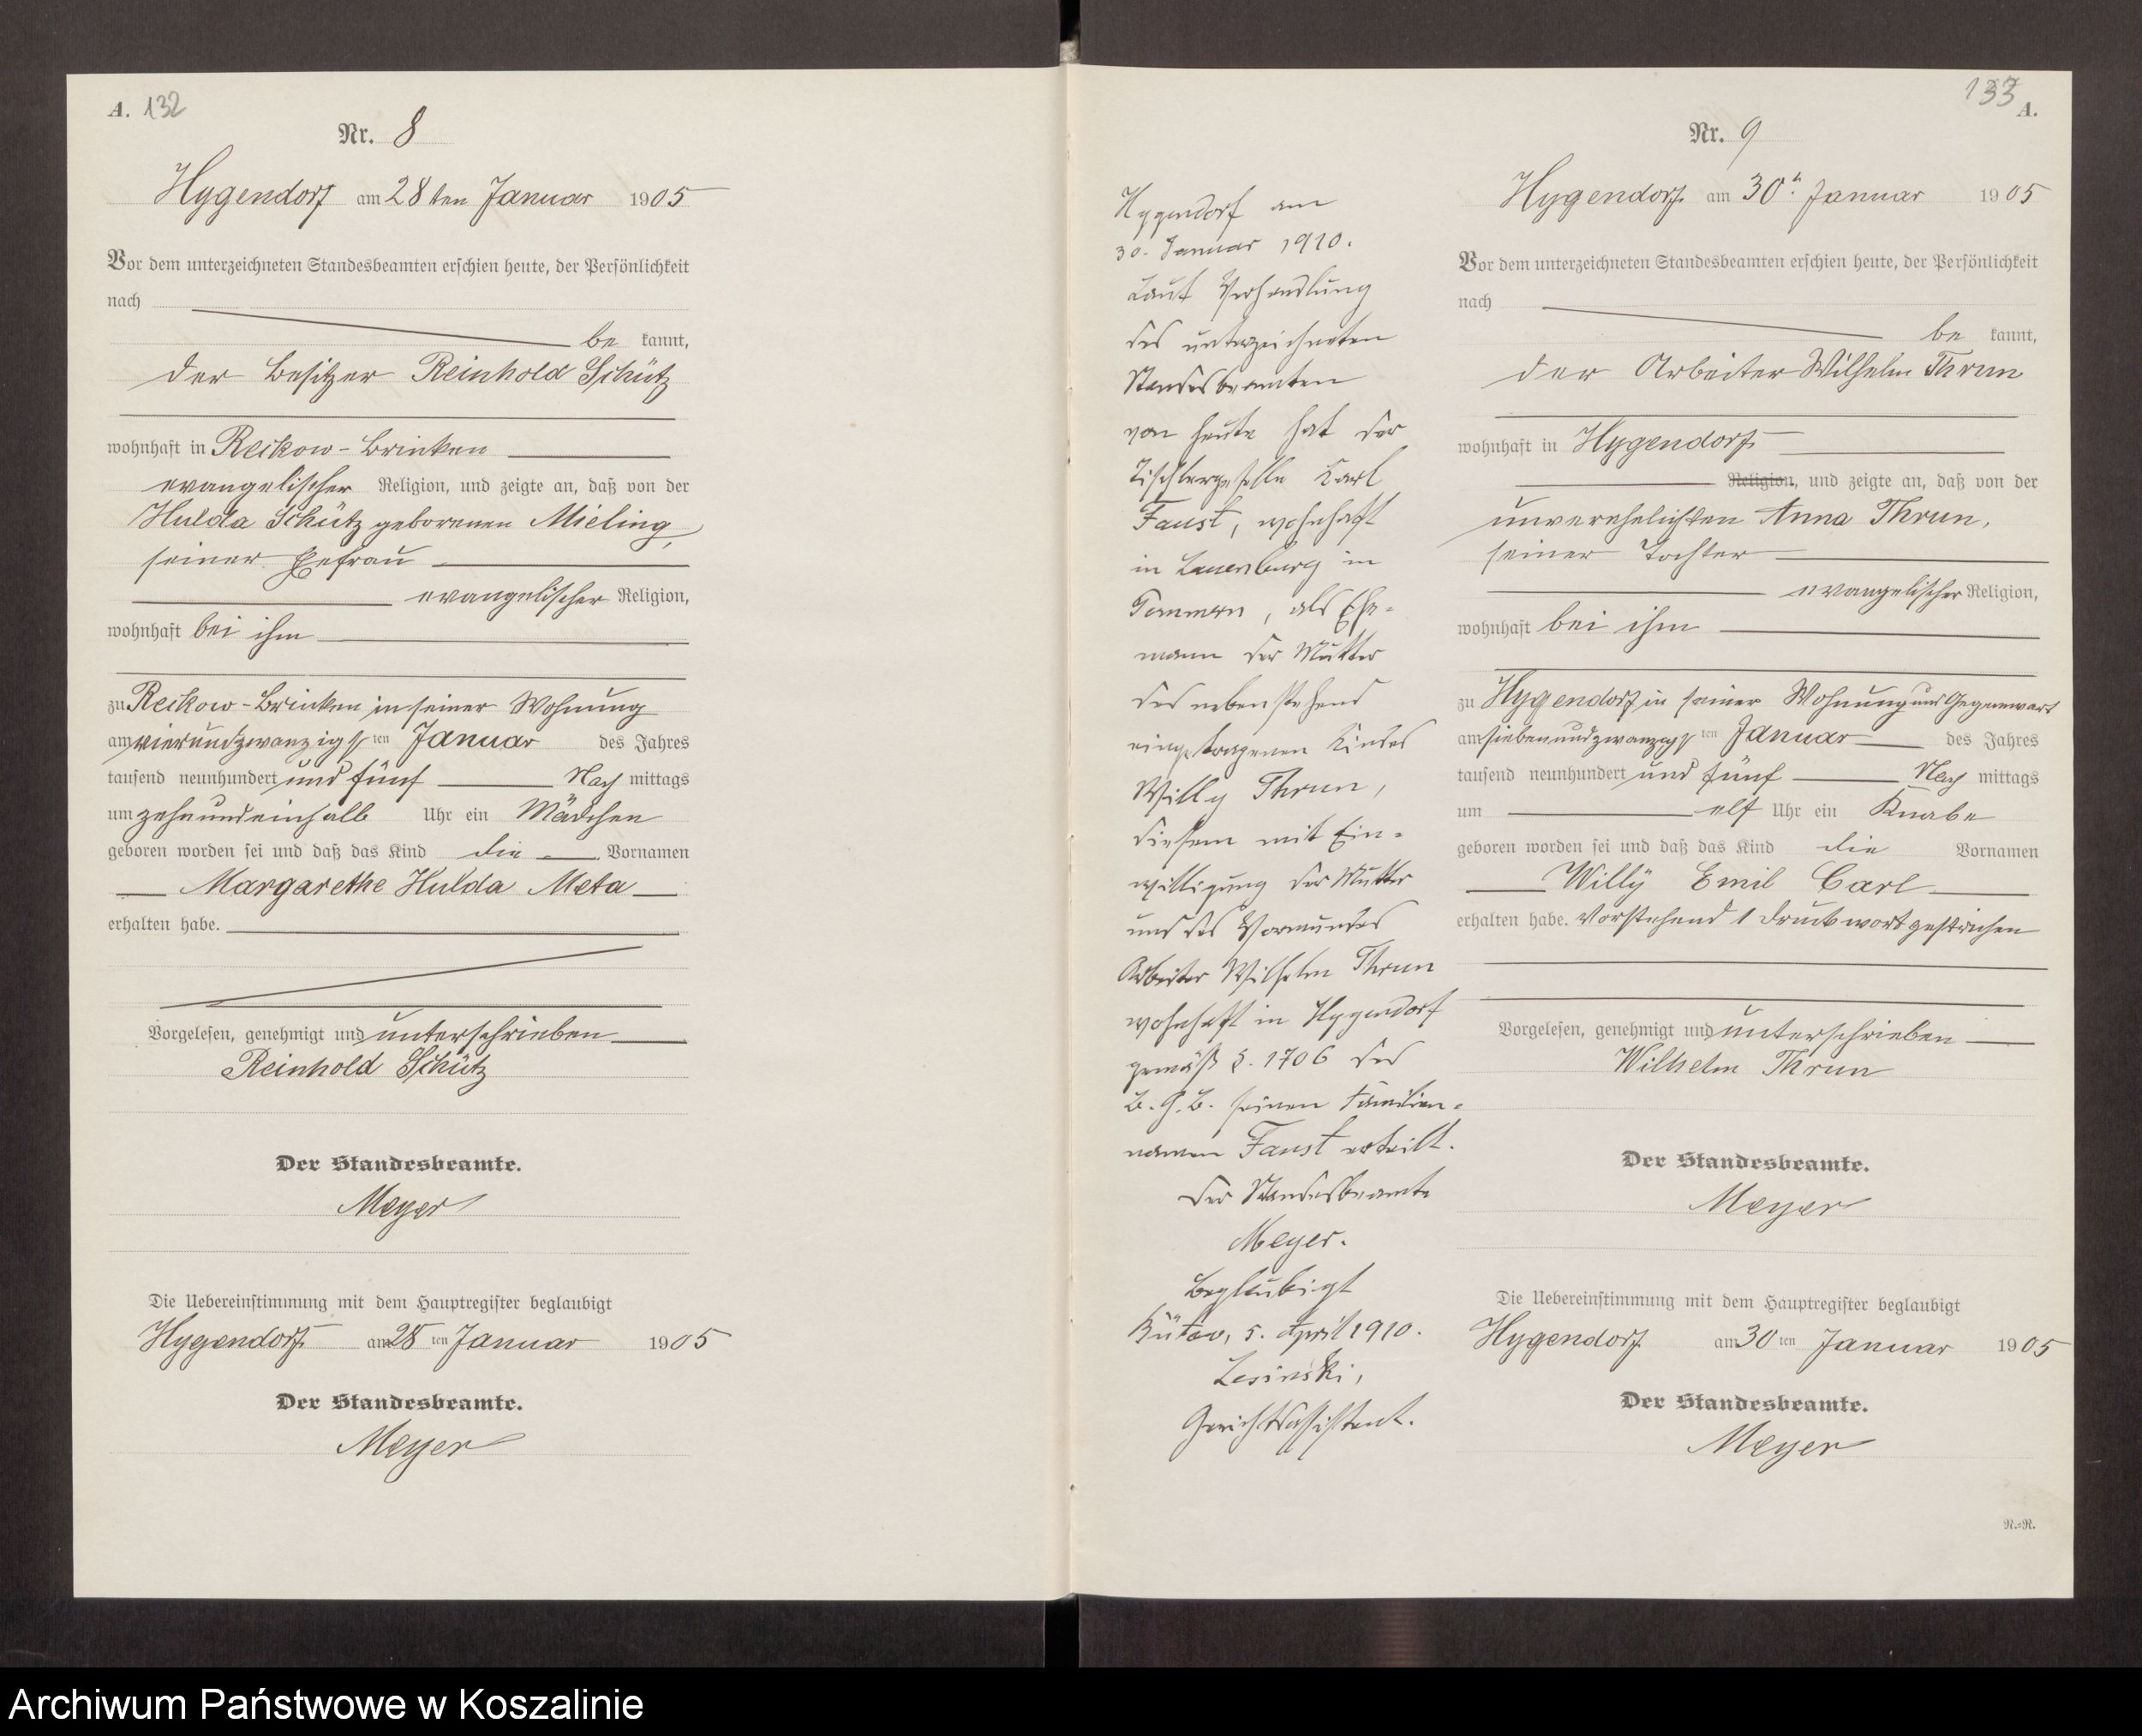 A. 132
Nr. 8
Hygendorf am 28ten Januar 1905
Vor dem unterzeichneten Standesbeamten erschien heute, der Persönlichkeit
nach
be kannt,
der Besitzer Reinhold Schütz
wohnhaft in Reckow-Brinken
evangelischer Religion, und zeigte an, daß von der
Hulda Schütz geborenen Mieling,
seiner Ehefrau
evangelischer Religion,
wohnhaft bei ihm
zu Reckow-Brinken in seiner Wohnung
am vierundzwanzigsten Januar des Jahres
tausend neunhundert und fünf Nach mittags
um zehnundeinhalb Uhr ein Mädchen
geboren worden sei und daß das Kind die Vornamen
Margarethe Hulda Meta
erhalten habe.
Vorgelesen, genehmigt und unterschrieben
Reinhold Schütz
Der Standesbeamte.
Meyer
Die Uebereinstimmung mit dem Hauptregister beglaubigt
Hygendorf am 28 ten Januar 1905
Der Standesbeamte.
Meyer
Hygendorf am
30. Januar 1910.
Laut Verhandlung
des unterzeichneten
Standesbeamten
von heute hat der
Tischlergeselle Karl
Faust, wohnhaft
in Lauenburg in
Pommern, als Ehe-
mann der Mutter
des nebenstehend
eingetragenen Kindes
Willy Thrun,
diesem mit Ein-
willigung der Mutter
und des Vormundes
Arbeiter Wilhelm Thrun
wohnhaft in Hygendorf
gemäß §. 1706 des
B.G.B. seinen Familien-
namen Faust erteilt.
Der Standesbeamte
Meyer.
Beglaubigt
Bütow, 5. April 1910.
Lesinski,
Gerichtsassistent.
133 A.
Nr. 9
Hygendorf am 30ten Januar 1905
Vor dem unterzeichneten Standesbeamten erschien heute, der Persönlichkeit
nach
be kannt,
der Arbeiter Wilhelm Thrun
wohnhaft in Hygendorf
Religion, und zeigte an, daß von der
unverehelichten Anna Thrun,
seiner Tochter
evangelischer Religion,
wohnhaft bei ihm
zu Hygendorf in seiner Wohnung und Gegenwart
am siebenundzwanzigsten Januar des Jahres
tausend neunhundert und fünf Nach mittags
um elf Uhr ein Knabe
geboren worden sei und daß das Kind die Vornamen
Willÿ Emil Carl
erhalten habe. Vorstehend 1 Druckwort gestrichen
Vorgelesen, genehmigt und unterschrieben
Wilhelm Thrun
Der Standesbeamte.
Meyer
Die Uebereinstimmung mit dem Hauptregister beglaubigt
Hygendorf am 30 ten Januar 1905
Der Standesbeamte.
Meyer
N.=N.
Archiwum Państwowe w Koszalinie